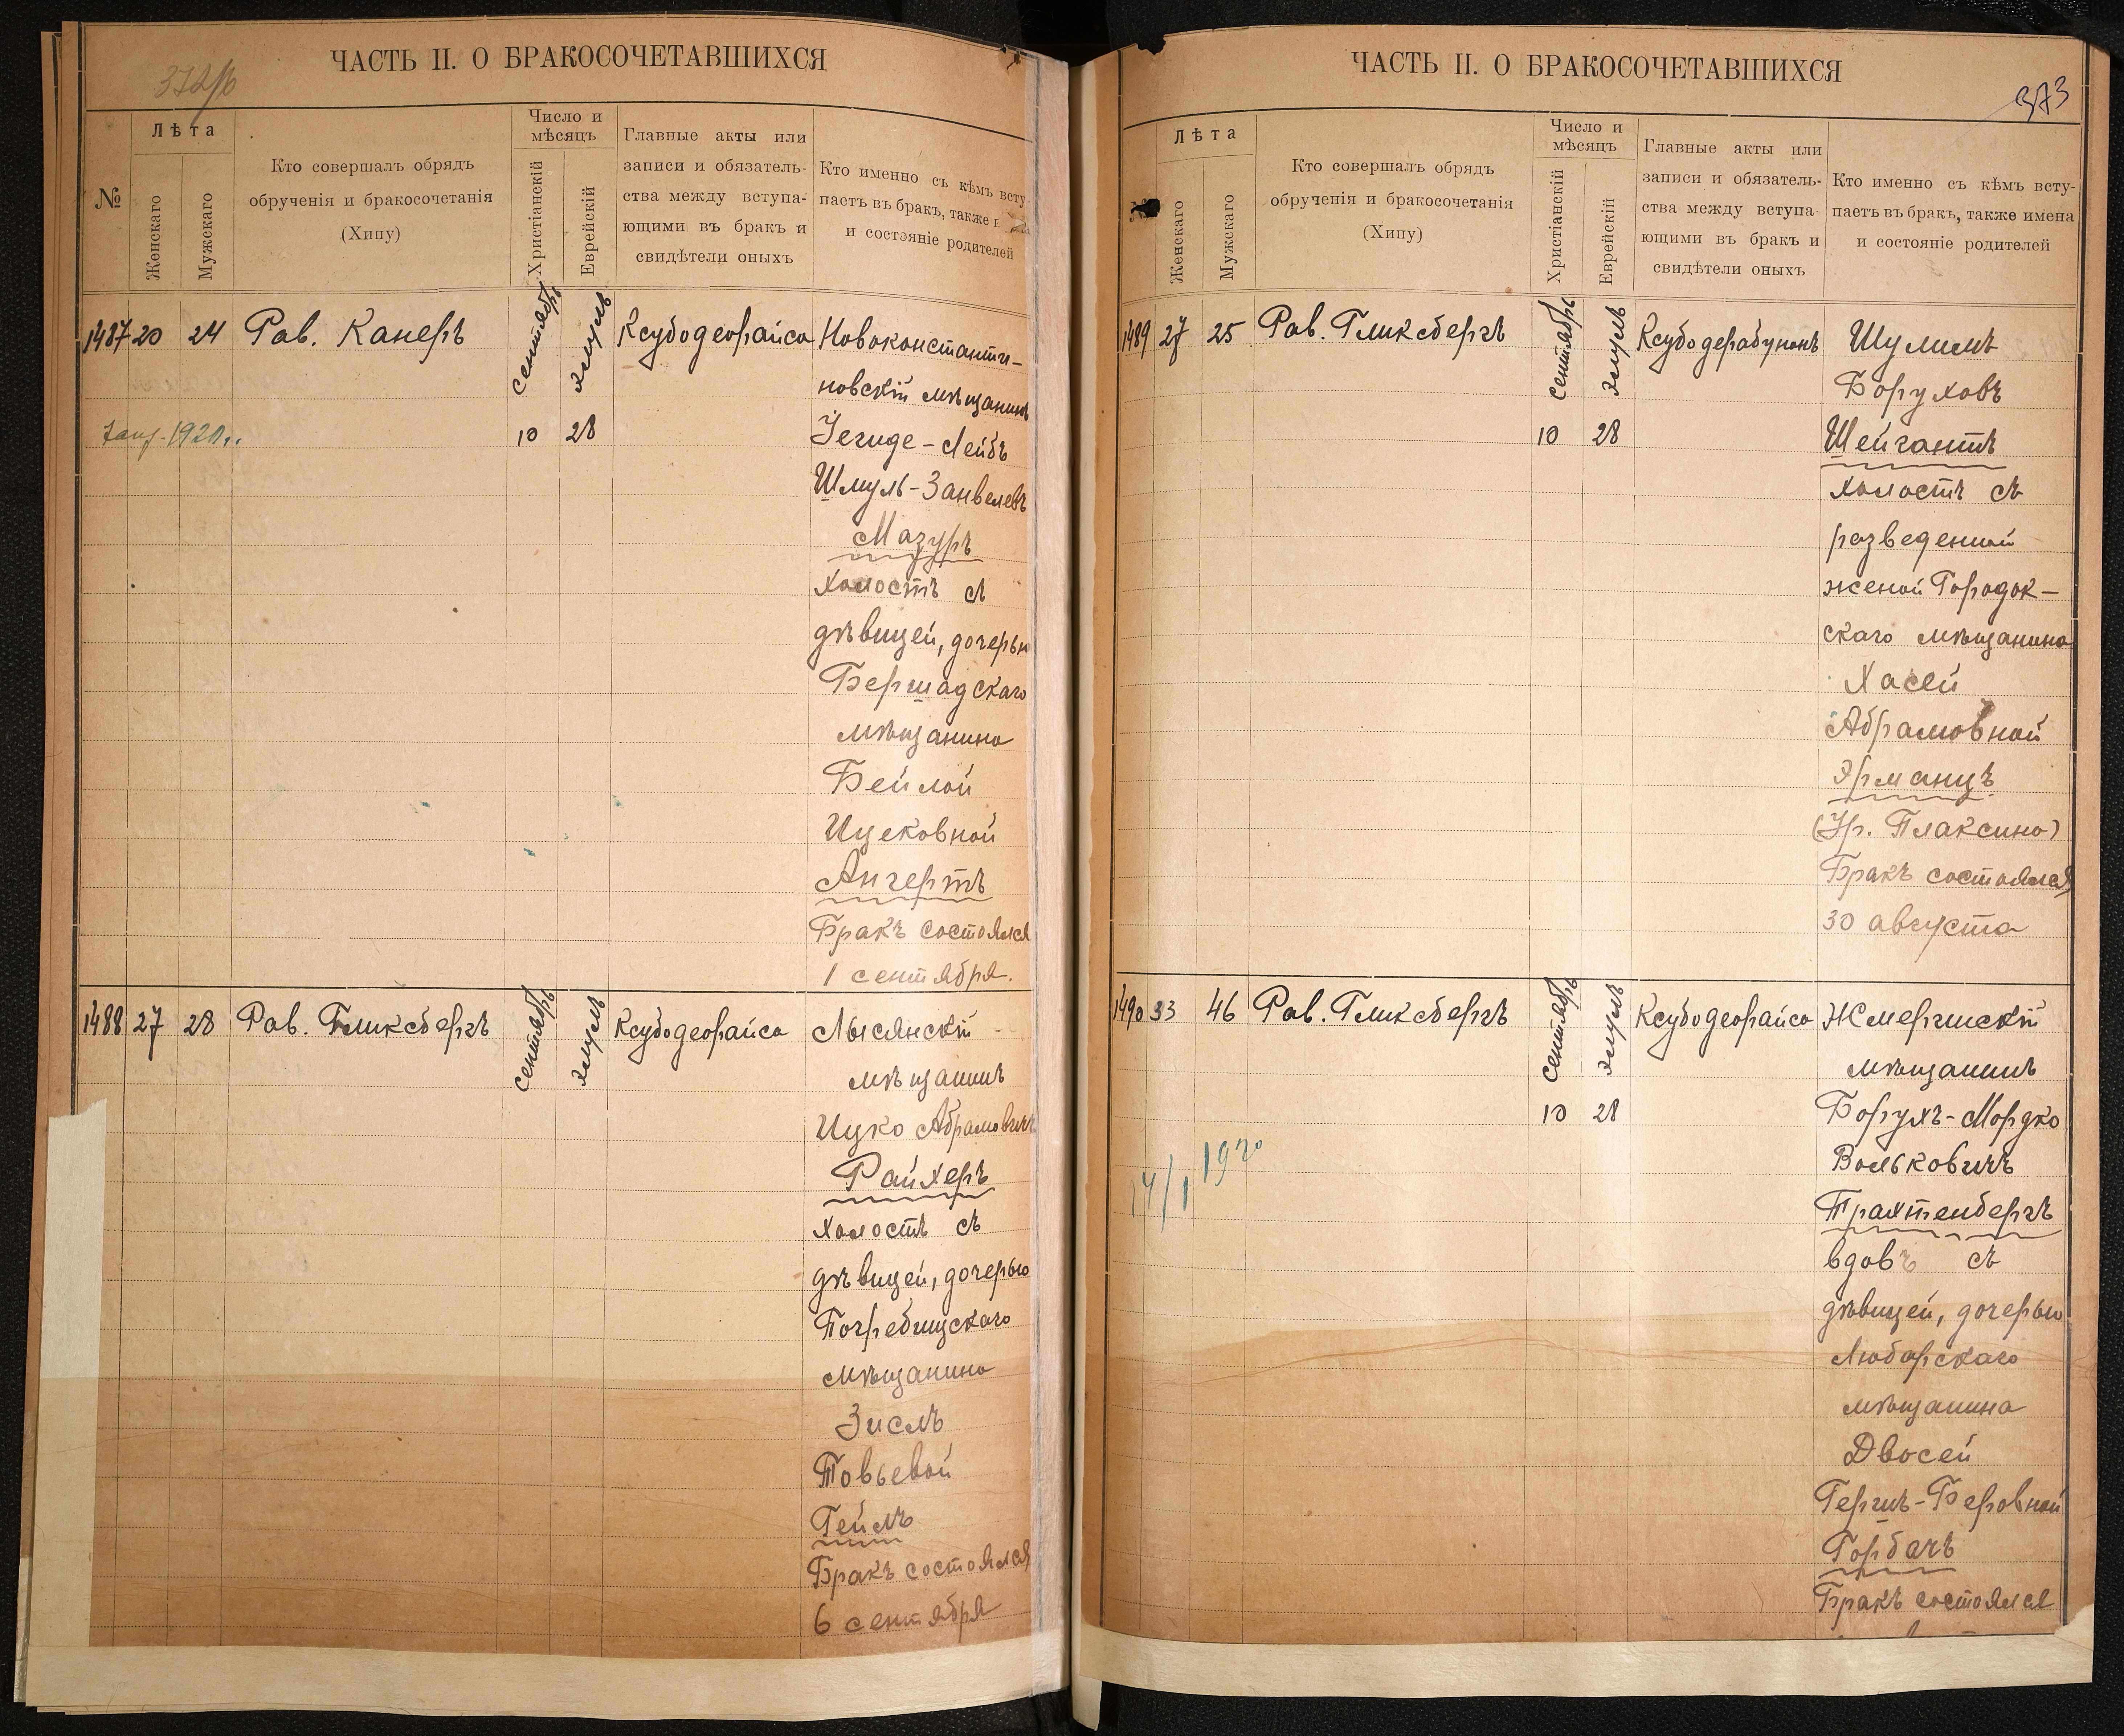 372об
ЧАСТЬ II. О БРАКОСОЧЕТАВШИХСЯ
№
Лѣта
Женскаго
Мужскаго
Кто совершалъ обрядъ
обрученія и бракосочетанія
(Хипу)
Число и
мѣсяцъ
Христіанскій
Еврейскій
Главные акты или
записи и обязатель-
ства между вступа-
ющими въ бракъ и
свидѣтели оныхъ
Кто именно съ кѣмъ всту
паетъ въ бракъ, также
и состояніе родителей
1487 20 24 Рав. Канеръ сентябрь элулъ Ксубодеорайса Новоконстанти-
новскій мѣщанинъ
1920 10 28 Іегуде-Лейбъ
Шмуль-Занвелевъ
Мазуръ
холостъ съ
дѣвицей, дочерью
Бершадскаго
мѣщанина
Бейлой
Ицековной
Ангертъ
Бракъ состоялся
1 сентября.
1488 27 28 Рав. Гликсбергъ сентябрь элулъ Ксубодеорайса Лысянскій
мѣщанинъ
Ицко Абрамовичъ
Райхеръ
холостъ съ
дѣвицей, дочерью
Погребищскаго
мѣщанина
Зислъ
Товьевой
Гейлъ
Бракъ состоялся
6 сентября
373
ЧАСТЬ II. О БРАКОСОЧЕТАВШИХСЯ
Лѣта
Женскаго
Мужскаго
Кто совершалъ обрядъ
обрученія и бракосочетанія
(Хипу)
Число и
мѣсяцъ
Христіанскій
Еврейскій
Главные акты или
записи и обязатель-
ства между вступа
ющими въ бракъ и
свидѣтели оныхъ
Кто именно съ кѣмъ всту-
паетъ въ бракъ, также имена
и состояніе родителей
1489 27 25 Рав. Гликсбергъ сентябрь элулъ Ксубодерабунонъ Шулимъ
Боруховъ
10 28 Шейгантъ
холостъ съ
разведенной
женой Городок-
скаго мѣщанина
Хасей
Абрамовной
Ярманцъ
(Ур. Плаксина)
Бракъ состоялся
30 августа
1490 33 46 Рав. Гликсбергъ сентябрь элулъ Ксубодеорайса Жмеринскій
мѣщанинъ
10 28 Борухъ-Мордко
14/I 1920 Вольковичъ
Трахтенбергъ
вдовъ съ
дѣвицей, дочерью
Любарскаго
мѣщанина
Двосей
Гершъ-Беровной
Горбачъ
Бракъ состоялся